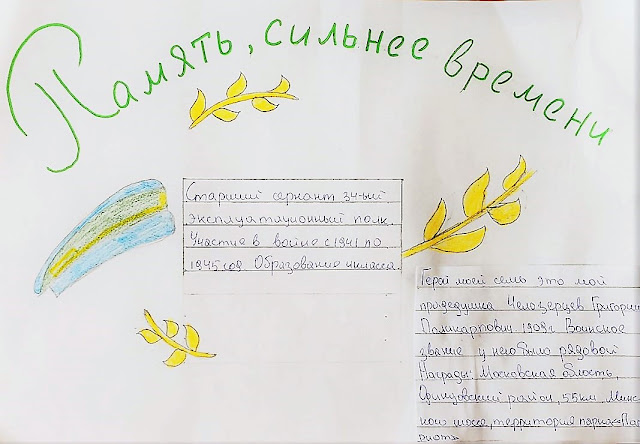 Память, сильнее времени
Старший сержант 34-ый
эксплуатляционный полк.
Участие в войне с 1941 по
1945 год Образование 4 класса
Герой моей семь это мой
прадедушка Челозерцев Григорий
Поликарпович 1909г Воинское
звание у него было рядовой
Награды: Московская область,
Одинцовский район, 55 км, Минс
кого шоссе, территория парка "Пат
риот".